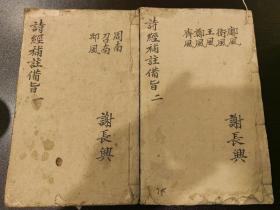 詩經補註備旨一
周南
召南
邶風
謝長興
詩經補註備旨二
鄘風
衛風
王風
鄭風
齊風
謝長興